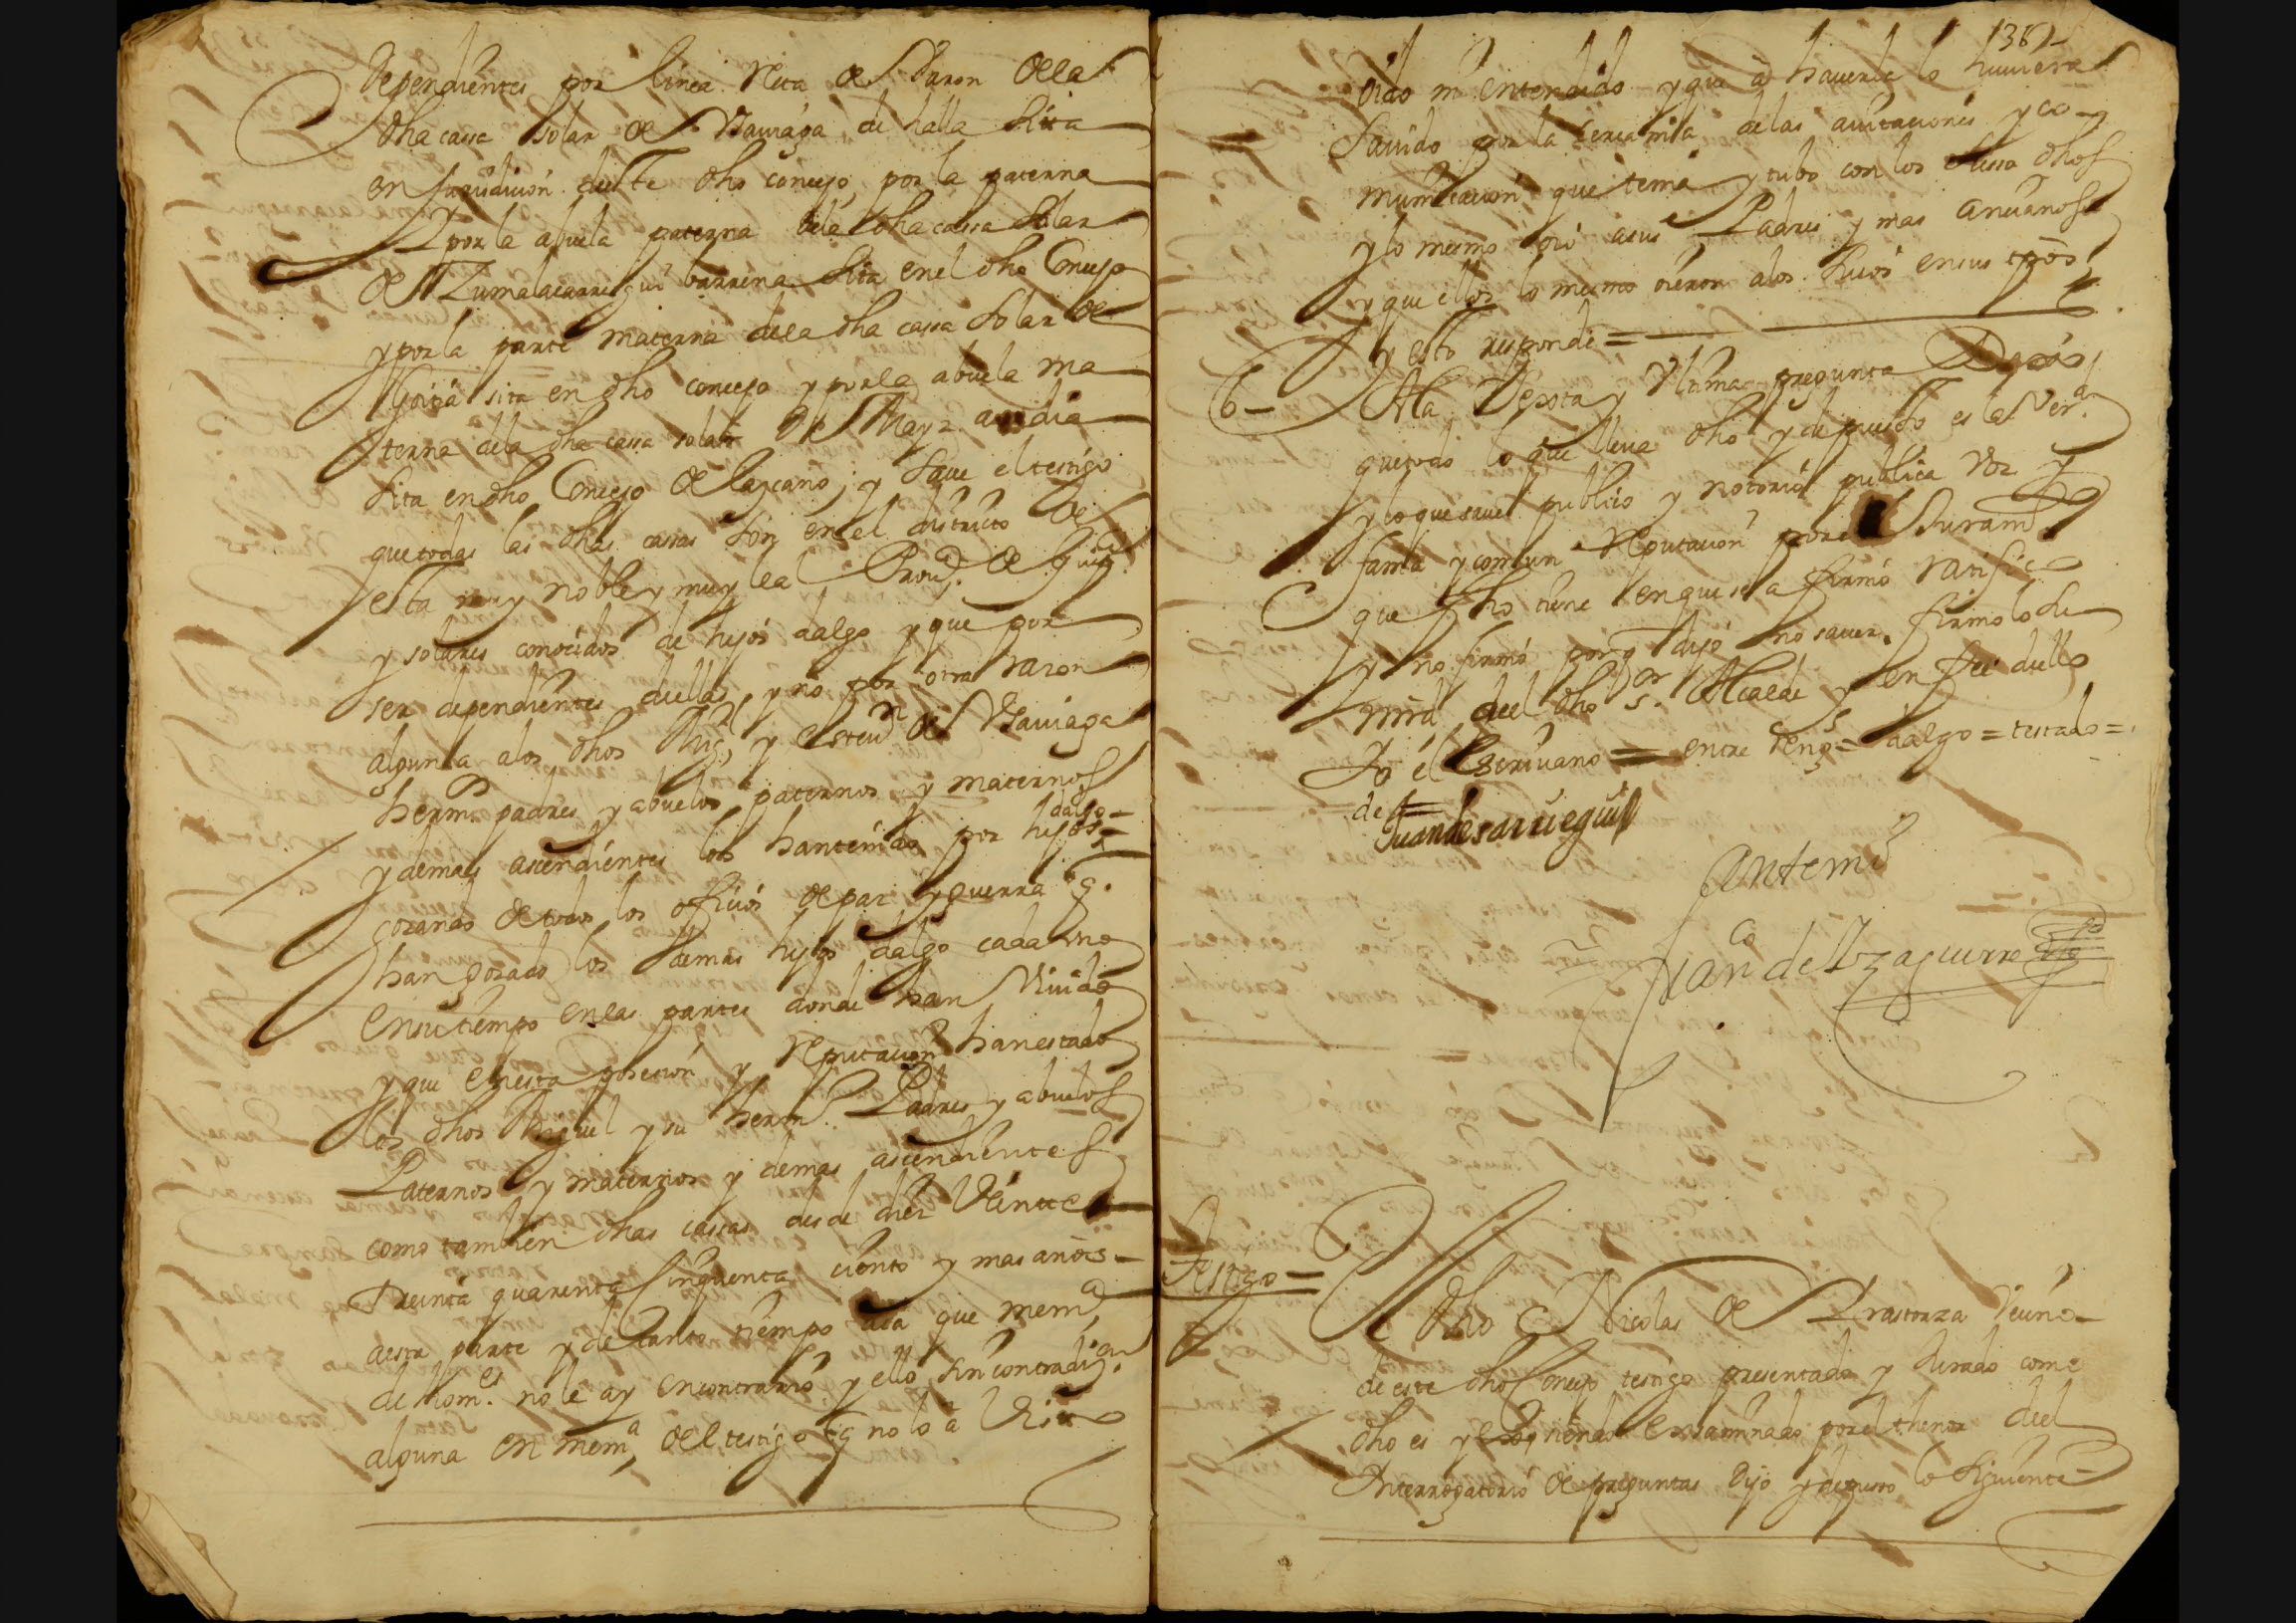 dependientes por linea Reta de Varon dela
dha cassa solar de de halla sita
en Jurisdicion deste dho concejo por la paterna
y por la abuela paterna dela dha cassa solar
de Zumalacarregui barrena sita en el dho Concejo
y por la parte materna dela dha cassa solar de
sita en dho concejo y por la abuela ma
terna dela dha cassa solar de
sita en dho Concejo de lazcano, y save el testigo
que todas las dhas cassas son en el districto de
esta muy noble y muy leal Prou.ª de
y solares conocidos de hijos dalgo y que por
ser dependientes dellas, y no por otra raçon
alguna a los dhos Mig.l y esteu.n de
herm.os padres y abuelos paternos y maternos
y demas ascendientes los han tenido por hijos dalgo =
gozando de todos los officios de paz y guerra q.
han gozado los demas hijos dalgo cada uno
en su tiempo en las partes donde han Viuido
y que en esta posesion y Reputacion han estado
los dhos Miguel y su herm.o Padres y abuelos
Paternos y maternos y demas ascendientes
como tambien dhas cassas desde diez Veinte
Treinta quarenta cinquenta ciento y mas años
a esta parte y de tanto tiempo aca que mem.a
de hom.es no le ay en contrario y ello sin contradi.on
alguna en mem.a del testigo q no lo a Visto
138
oido ni entendido y que a haverlo lo huuiera
sauido por la delas y co
municacion que tenia y tubo con los sussodhos
y lo mesmo oio a sus Padres y mas ancianos
y que ellos lo mesmo oieron a los suios en sus tpos
y esto responde =
6 – A la sexta y Vltima pregunta Dixo
que todo lo que lleva dho y depuesto es la Ver.d
y lo que save publico y notorio publica voz y
fama y comun Reputacion por el Juram.to
que fho tiene en que se afirmó ratificó
y no firmó porq dijo no saver. firmolo su
mrd del dho s.or Alcalde y en fee dello
Yo el escriuano = entre reng.s = dalgo = testado =
de =
Juan de sarriegui
Ante mi
Fran.co de Yzaguirre
Testigo =
El dho Nicolas de Vrastorza Vecino
de este dho Concejo testigo presentado y Jurado como
dho es y siendo examinado por el thenor del
Interrogatorio de preguntas Dijo y depuso lo siguiente